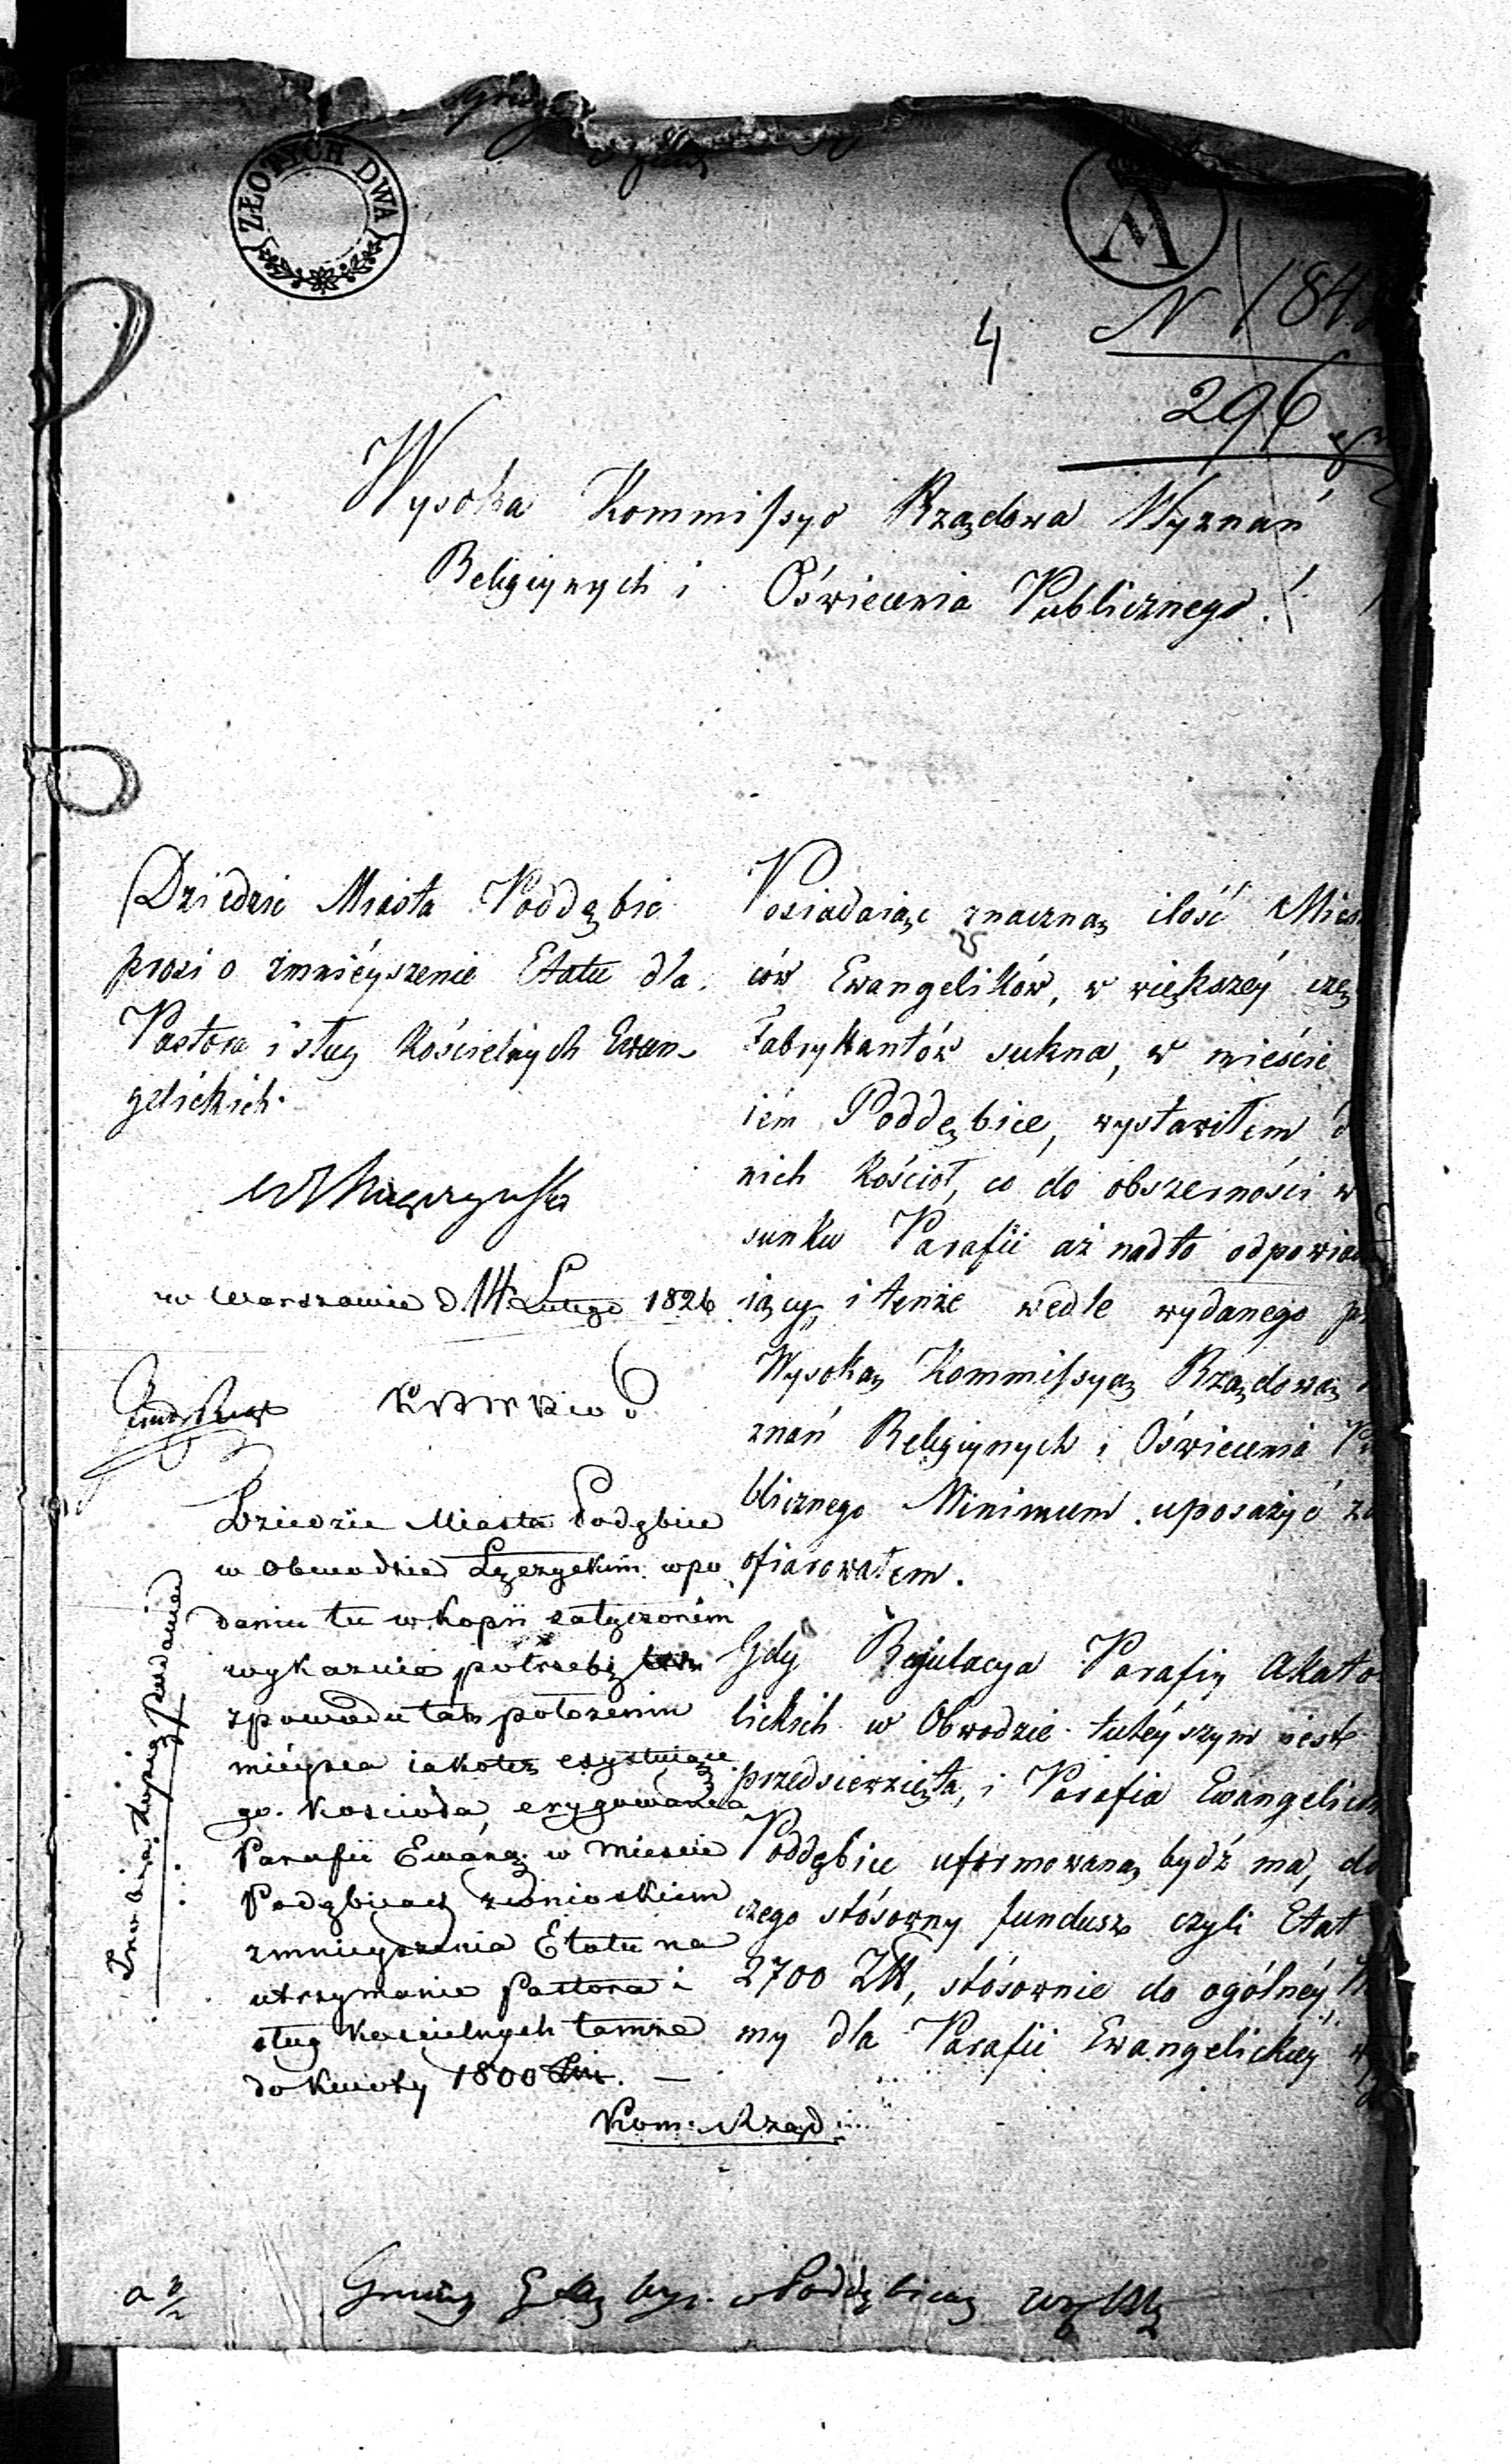 ZŁOTYCH DWA
4
N 184
296
Wysoka Kommissyo Rządowa Wyznań
Religiynych i Oświecenia Publicznego!
Dziedzic Miasta Poddębic
prosi o zmnieyszenie Etatu dla
Pastora i sług Kościelnych Ewan-
gelickich.
w Warszawie d 14 Lutego 1826
Dziedzic Miasta Podębice
w Obwodzie Łęczyckim w po
daniu tu w kopii załączonem
wykazuie potrzebę
z powodu tak położenia
mieysca iakoteż exystuiące
go Kościoła, erygowania
Parafii Ewang. w Mieście
Podębicach z wnioskiem
zmnieyszenia Etatu na
utrzymanie Pastora i
sług Kościelnych tamże
do kwoty 1800
Kom: Rząd:
Posiadaiąc znaczną ilość Mies
ców Ewangelików, w większéy czę
Fabrykantów sukna, w mieście
iém Poddębice, wystawiłem d
nich Kościoł, co do obszerności w
sunku Parafii aż nadto odpowiad
iący, i tenże wedle wydanego p
Wysoką Kommissyą Rządową
znań Religiynych i Oświecenia Pu
blicznego Minimum uposażyć za
ofiarowałem.
Gdy Regulacya Parafiy Akato
lickich w Obwodzie tuteyszym iest
przedsięwzięta, i Parafia Ewangelick
Poddębice uformowaną bydź ma, do
czego stósowny fundusz czyli Etat
2700 Złł, stósownie do ogólnéy
my dla Parafii Ewangelickiéy